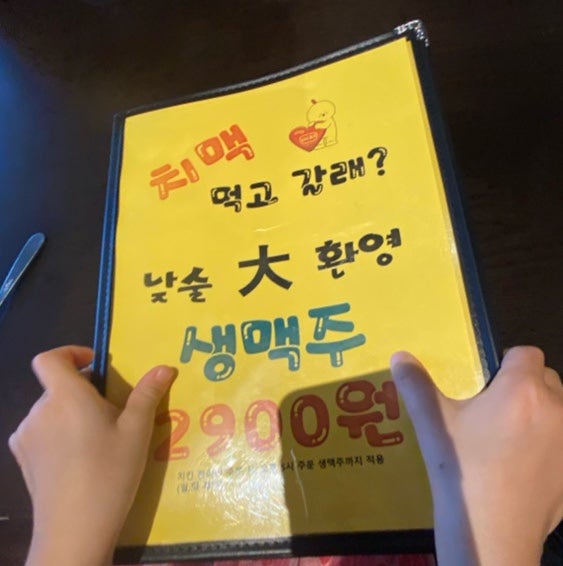 치맥
먹고 갈래?
낮술 大 환영
생맥주
2900원
치킨 주문 생맥주까지 적용